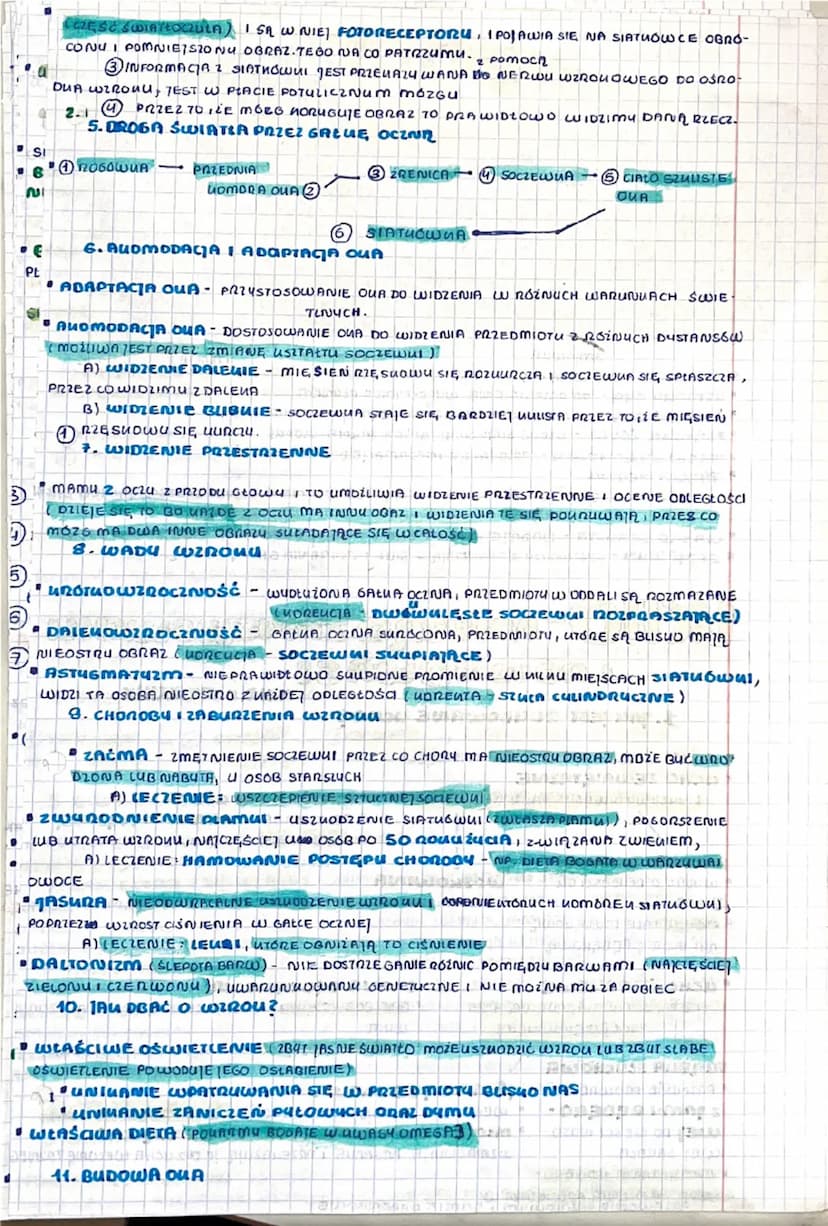 (CZĘŚĆ ŚWIATŁOCZUŁA) I SĄ W NIEJ FOTORECEPTORY, I POJAWIA SIĘ NA SIATKÓWCE OBRÓ-
CONY I POMNIEJSZONY OBRAZ TEGO NA CO PATRZYMY.
Z POMOCĄ
③ INFORMACJA Z SIATKÓWKI JEST PRZEKAZYWANA DO NERWU WZROKOWEGO DO OŚRO-
DKA WZROKU, JEST W PŁACIE POTYLICZNYM MÓZGU
④ PRZEZ TO, ŻE MÓZG KORYGUJE OBRAZ TO PRAWIDŁOWO WIDZIMY DANĄ RZECZ.
5. DROGA ŚWIATŁA PRZEZ GAŁKĘ OCZNĄ
① ROGÓWKA — PRZEDNIA KOMORA OKA ② — ③ ŹRENICA — ④ SOCZEWKA — ⑤ CIAŁO SZKLISTE OKA
⑥ SIATKÓWKA
6. AKOMODACJA I ADAPTACJA OKA
• ADAPTACJA OKA - PRZYSTOSOWANIE OKA DO WIDZENIA W RÓŻNYCH WARUNKACH ŚWIE-
TLNYCH.
• AKOMODACJA OKA - DOSTOSOWANIE OKA DO WIDZENIA PRZEDMIOTU Z RÓŻNYCH DYSTANSÓW
(MOŻLIWA JEST PRZEZ ZMIANĘ KSZTAŁTU SOCZEWKI)
A) WIDZENIE DALEKIE - MIĘSIEŃ RZĘSKOWY SIĘ ROZKURCZA I SOCZEWKA SIĘ SPŁASZCZA,
PRZEZ CO WIDZIMY Z DALEKA
B) WIDZENIE BLISKIE - SOCZEWKA STAJE SIĘ BARDZIEJ KULISTA PRZEZ TO, ŻE MIĘSIEŃ
RZĘSKOWY SIĘ KURCZY.
7. WIDZENIE PRZESTRZENNE
• MAMY 2 OCZY Z PRZODU GŁOWY I TO UMOŻLIWIA WIDZENIE PRZESTRZENNE I OCENE ODLEGŁOŚCI
(DZIEJE SIĘ TO BO KAŻDE Z OCZU MA INNY OBAZ I WIDZENIA TE SIĘ POKRYWAJĄ, PRZES CO
MÓZG MA DWA INNE OBRAZY SKŁADAJĄCE SIĘ W CAŁOŚĆ)
8. WADY WZROKU
• KRÓTKOWZROCZNOŚĆ - WYDŁUŻONA GAŁKA OCZNA, PRZEDMIOTY W ODDALI SĄ ROZMAZANE
(KOREKCJA - DWÓWKLĘSŁE SOCZEWKI ROZPRASZAJĄCE)
• DALEKOWZROCZNOŚĆ - GAŁKA OCZNA SKRÓCONA, PRZEDMIOTY, KTÓRE SĄ BLISKO MAJĄ
NIEOSTRY OBRAZ (KOREKCJA - SOCZEWKI SKUPIAJĄCE)
• ASTYGMATYZM - NIEPRAWIDŁOWO SKUPIONE PROMIENIE W KILKU MIEJSCACH SIATKÓWKI,
WIDZI TA OSOBA NIEOSTRO Z KAŻDEJ ODLEGŁOŚCI (KOREKTA - SZKŁA CYLINDRYCZNE)
9. CHOROBY I ZABURZENIA WZROKU
• ZAĆMA - ZMĘTNIENIE SOCZEWKI PRZEZ CO CHORY MA NIEOSTRY OBRAZ, MOŻE BYĆ WRO-
DZONA LUB NABYTA, U OSOB STARSZYCH
A) LECZENIE: WSZCZEPIENIE SZTUCZNEJ SOCZEWKI
• ZWYRODNIENIE PLAMKI - USZKODZENIE SIATKÓWKI (ZWŁASZA PLAMKI), POGORSZENIE
LUB UTRATA WZROKU, NAJCZĘŚCIEJ U OSÓB PO 50 ROKU ŻYCIA, ZWIĄZANA Z WIEKIEM,
A) LECZENIE: HAMOWANIE POSTĘPU CHOROBY - NP. DIETA BOGATA W WARZYWA I
OWOCE
• JASKRA - NIEODWRACALNE USZKODZENIE WZROKU I KOMÓREK SIATKÓWKI,
POPRZEZ WZROST CIŚNIENIA W GAŁCE OCZNEJ
A) LECZENIE: LEKI, KTÓRE OBNIŻAJĄ TO CIŚNIENIE
• DALTONIZM (ŚLEPOTA BARW) - NIE DOSTRZEGANIE RÓŻNIC POMIĘDZY BARWAMI (NAJCZĘŚCIEJ
ZIELONY I CZERWONY), UWARUNKOWANY GENETYCZNE I NIE MOŻNA MU ZAPOBIEC
10. JAK DBAĆ O WZROK?
• WŁAŚCIWE OŚWIETLENIE (ZBYT JASNE ŚWIATŁO MOŻE USZKODZIĆ WZROK LUB ZBYT SŁABE
OŚWIETLENIE POWODUJE JEGO OSŁABIENIE)
• UNIKANIE WPATRYWANIA SIĘ W PRZEDMIOTY BLISKO NAS
• UNIKANIE ZANICZEŃ PYŁOWYCH ORAZ DYMU
• WŁAŚCIWA DIETA (POKARMY BOGATE W KWASY OMEGA 3)
11. BUDOWA OKA